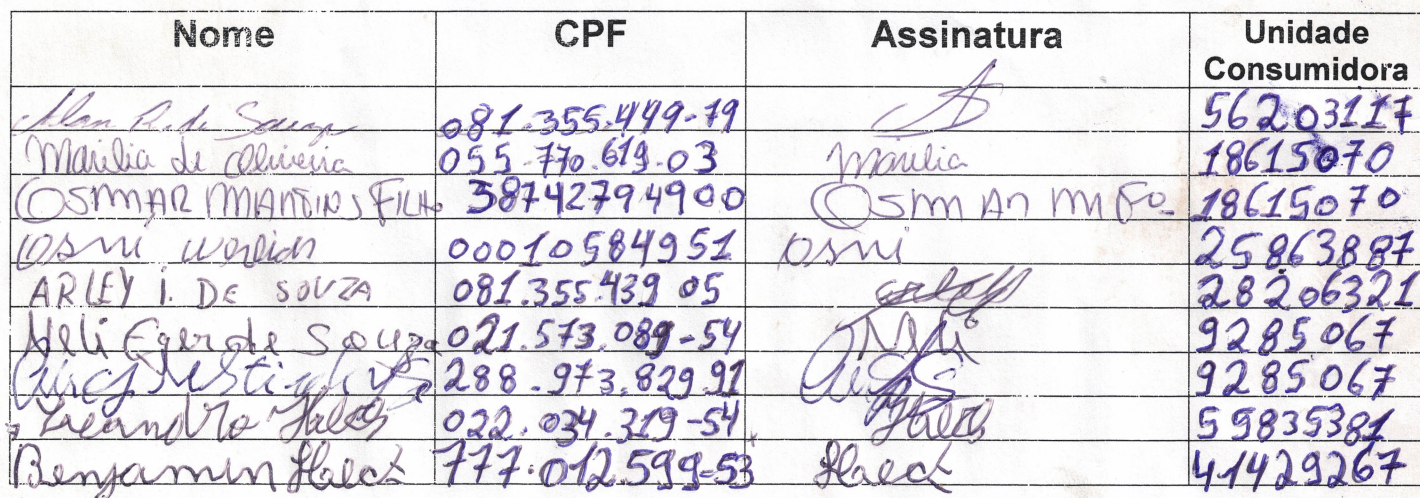 Nome CPF Assinatura Unidade Consumidora
Alan R. de Souza 081.355.449-79 56203117
Marilia de Oliveira 055.770.619.03 Marilia 18615070
OSMAR MARTINS FILHO 38742794900 18615070
Osni 00010584951 Osni 25863887
ARLEY I. DE SOUZA 081.355.439 05 28206321
Neli Eger de Souza 021.573.089-54 Neli 9285067
288.973.829 91 9285067
Leandro Haeck 022.034.319-54 Haeck 59835381
Benjamin Haeck 777.012.599-53 Haeck 41429267